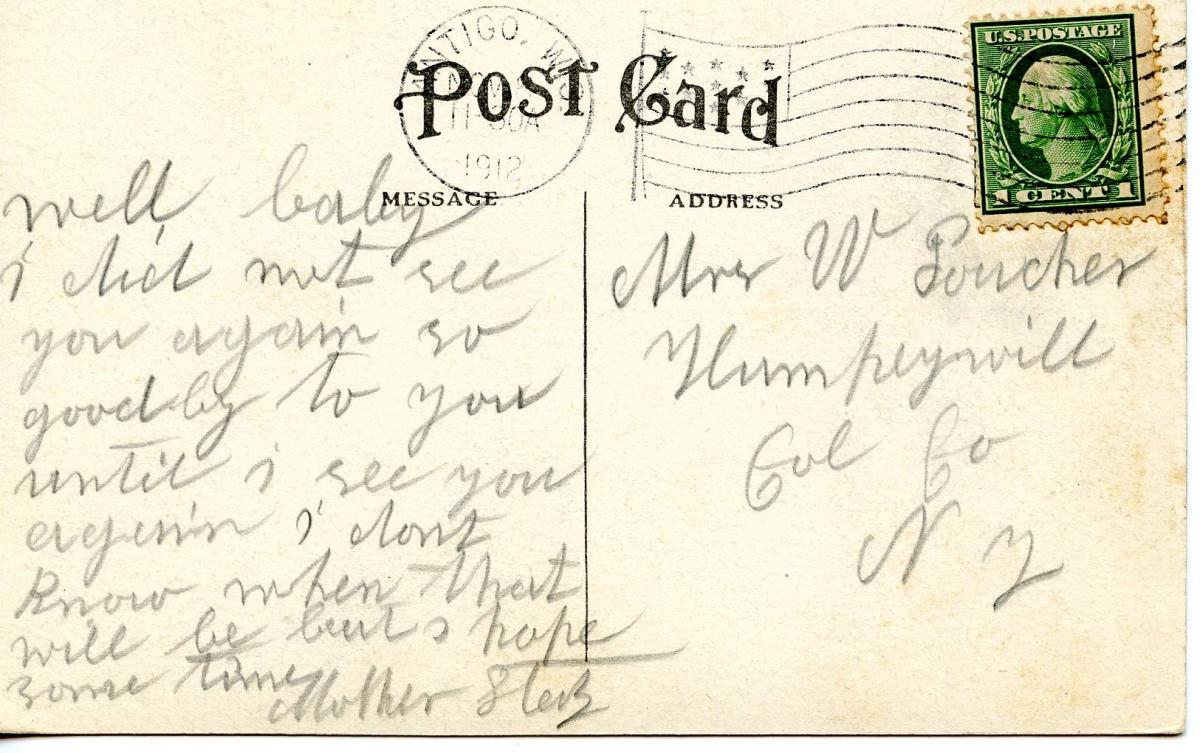 ANTIGO, WIS
11-30A
1912
Post Card
U.S. POSTAGE
1 CENT 1
MESSAGE
ADDRESS
well baby
i did not see
you again so
good by to you
until i see you
again i dont
know when that
will be but i hope
some time
Mother
Mrs W Poucher
Humpeyvill
Col Co
N Y